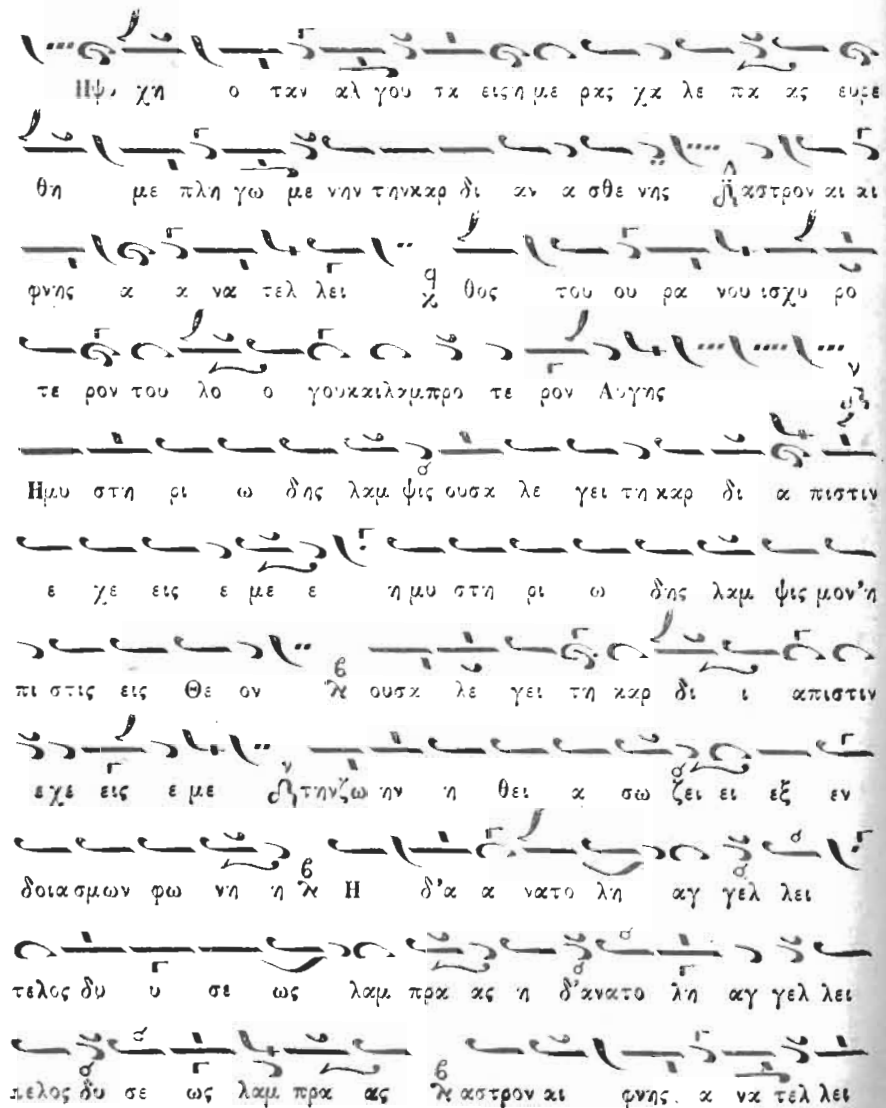 Ηψυ χη ο ταν αλ γου τα εις η με ρας χα λε πα ας ευρε
θη με πλη γω με νην την καρ δι αν α σθε νης αστρον αι αι
φνης α α να τελ λει θος του ου ρα νου ισχυ ρο
τε ρον του λο ο γου και λαμπρο τε ρον Αυγης
Ημυ στη ρι ω δης λαμ ψις ουσα λε γει τη καρ δι α πιστιν
ε χε εις ε με ε η μυ στη ρι ω δης λαμ ψις μον'η
πι στις εις Θε ον ουσα λε γει τη καρ δι ι α πιστιν
ε χε εις ε με την ζω ην η θει α σω ζει ει εξ εν
δοιασμων φω νη η Η δ'α α νατο λη αγ γελ λει
τελος δυ υ σε ως λαμ πρα ας η δ'ανατο λη αγ γελ λει
τελος δυ σε ως λαμ πρα ας αστρον αι φνης α να τελ λει